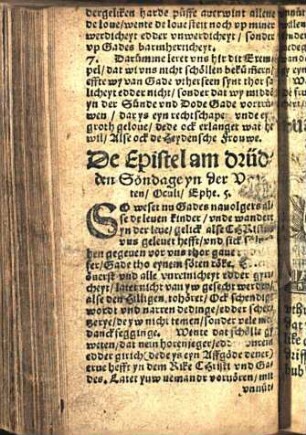 dergeliken harde püffe auerwint allene
de loue/ wente de loue süet noch vp mine
werdicheyt edder vnwerdicheyt / sonder
vp Gades barmherticheyt.
7. Darümme leret vns hir dit Exem-
pel/ dat wi vns nicht schölen bekümern/
effte wy van Gade vtherseen synt thor sa-
licheyt edder nicht/ sonder dat wy midden
yn der Sünde vnd Dode Gade vortrü-
wen / dat ys eyn rechtschape vnde
groth geloue/ dede ock erlanger wat he
wil/ Alse ock de Heydensche Frouwe.
De Epistel am drüd-
den Söndage yn der
ten/ Oculi/ Ephe. 5.
SO weset nu Gades nauolgers als
se de leuen kinder / vnde wandert
yn der leue/ gelick alse Christus
vns geleuet hefft/ vnd sick
hen gegeuen vor vns thor gaue
fer/ Gade tho eynem söten röke.
öuerst vnd alle vnreinicheyt edder gyri-
cheyt / latet nicht van yw gesecht werden/
alse den Hilligen tohöret/ Ock schendige
wordt vnd narren dedinge/ edder scher-
gerye/ de yw nicht temen/ sonder vele me
dancksegginge. Wente dat schölle gy
weten/ dat nein horenjeger/ edder
edder gitich (dede ys eyn Affgöde dener)
erue hefft yn dem Rike Christi vnd Ga-
des. Latet yuw nemandt vorvören / mit
vnnüt-